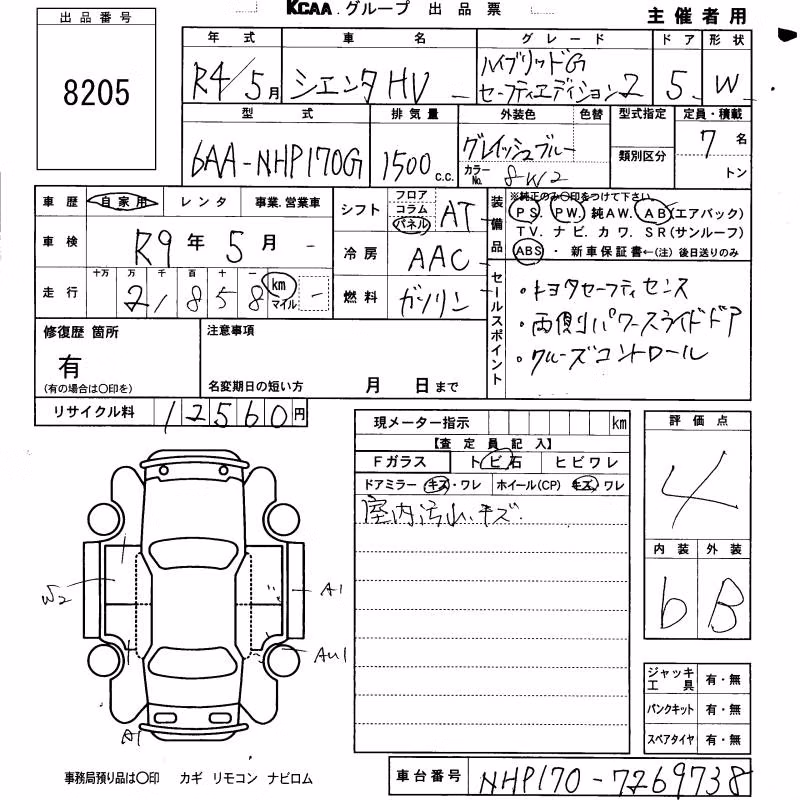 KCAA グループ 出品票
主催者用
出品番号
8205
年式 車名 グレード ドア 形状
R4/5月 シエンタHV ハイブリッドG セーフティエディション2 5 W
型式 排気量 外装色 色替 型式指定 定員・積載
6AA-NHP170G 1500c.c. グレイッシュブルー 類別区分 7名
カラーNo. 8W2 トン
車歴 自家用 レンタ 事業.営業車
シフト フロア コラム パネル AT
装備品 ※純正のみ○印をつけて下さい。
PS. PW. 純AW. AB(エアバック)
TV. ナビ. カワ. SR(サンルーフ)
ABS ・ 新車保証書←(注)後日送りのみ
車検 R9年5月
冷房 AAC
走行 十万 万 千 百 十 一
21858 km マイル
燃料 ガソリン
セールスポイント
・トヨタセーフティセンス
・両側パワースライドドア
・クルーズコントロール
修復歴 箇所
有
(有の場合は○印を)
注意事項
名変期日の短い方 月 日まで
リサイクル料 12560円
現メーター指示 km
【査定員記入】
Fガラス トビ石 ヒビワレ
ドアミラー キズ・ワレ ホイール(CP) キズ. ワレ
室内汚れ、キズ
評価点
4
内装 外装
b B
W2
A1
AU1
A1
ジャッキ工具 有・無
パンクキット 有・無
スペアタイヤ 有・無
事務局預り品は○印 カギ リモコン ナビロム
車台番号 NHP170-7269738